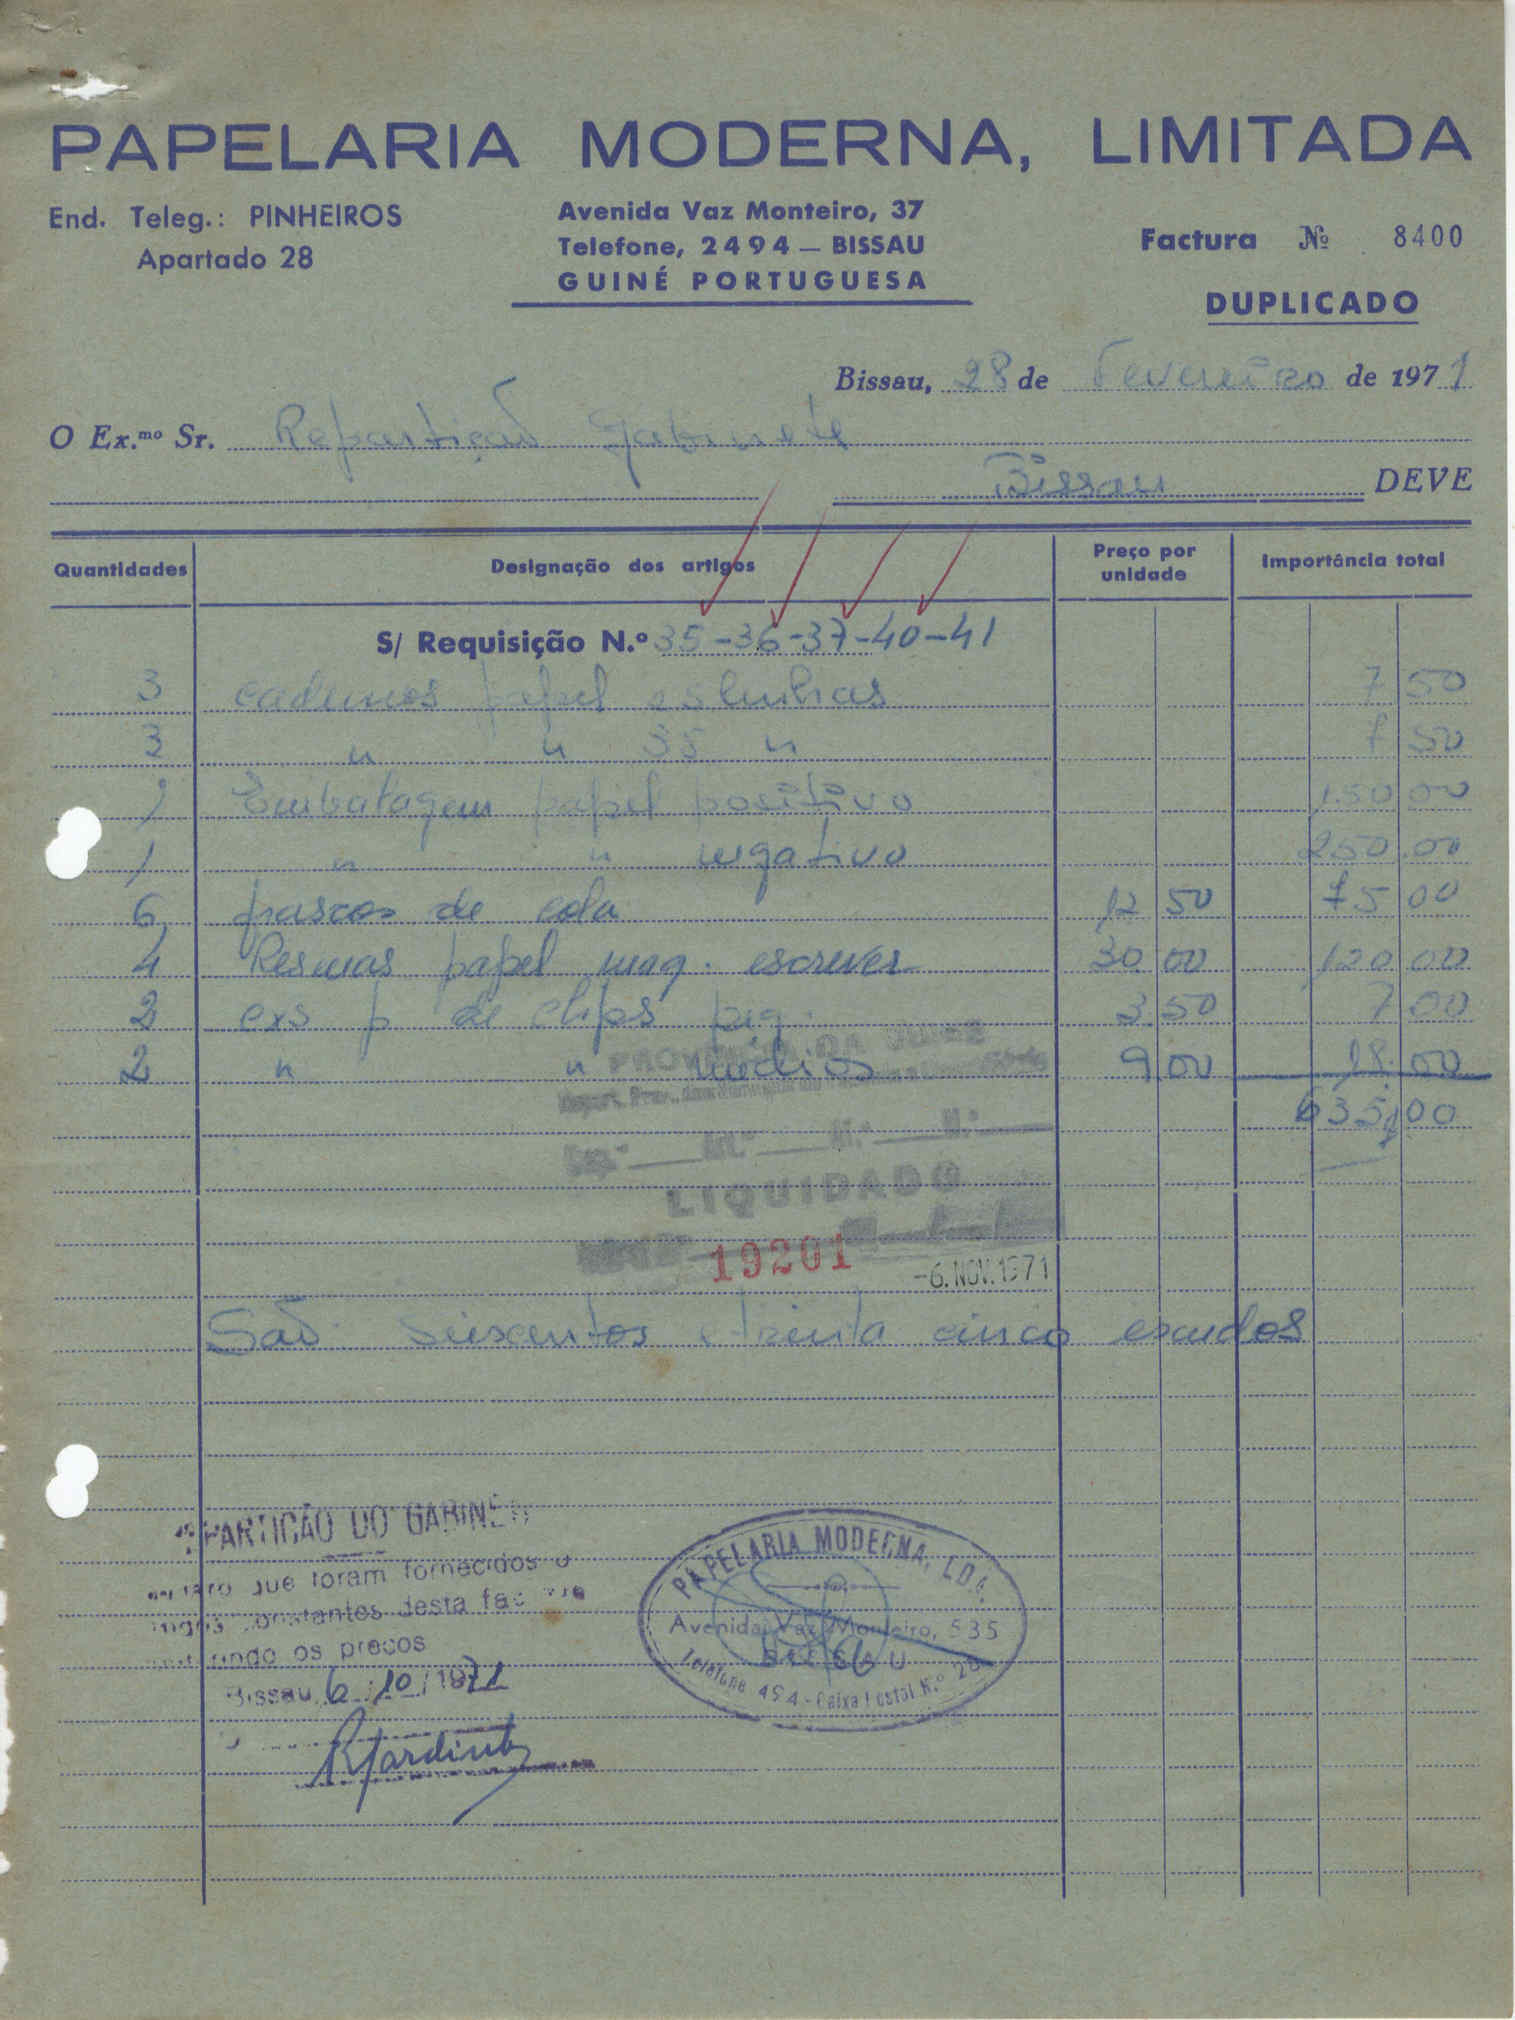 PAPELARIA MODERNA, LIMITADA
End. Teleg.: PINHEIROS
Apartado 28
Avenida Vaz Monteiro, 37
Telefone, 2494 — BISSAU
GUINÉ PORTUGUESA
Factura Nº 8400
DUPLICADO
Bissau, 28 de Fevereiro de 1971
O Ex.mo Sr. Repartição Gabinete
Bissau DEVE
Quantidades Designação dos artigos Preço por unidade Importância total
S/ Requisição N.º 35-36-37-40-41
3 cadernos papel linhas 7 50
3 " " 35 " 7 50
1 Embalagem papel positivo 150 00
1 " " negativo 250.00
6 frascos de cola 12 50 75 00
4 Resmas papel maq. escrever 30 00 120 00
2 cxs p de clips peq. 3.50 7 00
2 " " medios 9,00 18.00
635,00
PROVINCIA DA GUINÉ
Cap.º Art.º N.º
LIQUIDADO
19201 -6.NOV.1971
São seiscentos e trinta cinco escudos
PARTIÇÃO DO GABINE
que foram fornecidos o
constantes desta fac
os preços
Bissau, 6/10/1971
PAPELARIA MODERNA, LDA.
Avenida Vaz Monteiro, 535
BISSAU
Telefone 494 - Caixa Postal N.º 28